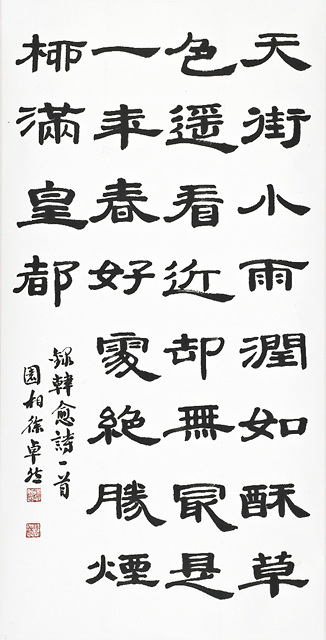 天街小雨潤如酥草
色遥看近却無冣是
一年春好處絶勝煙
柳滿皇都
錄韓愈詩一首
徐卓然